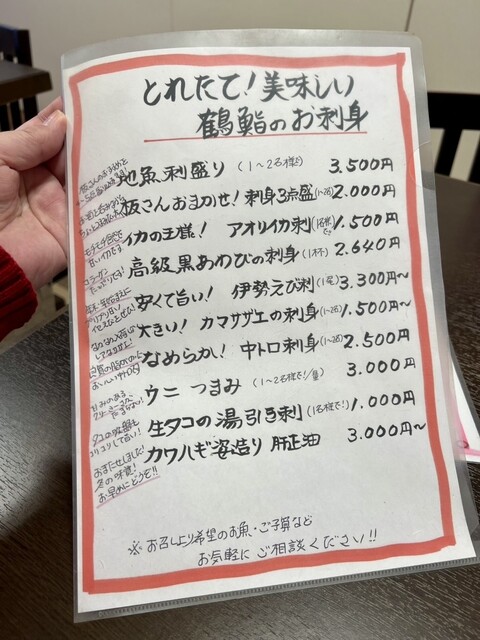 とれたて！美味しい
鶴鮨のお刺身
地魚刺盛り (1〜2名様で) 3.500円
板さんおまかせ！刺身3点盛 (1〜2名) 2.000円
イカの王様！ アオリイカ刺 (1名様で) 1.500円
高級黒あわびの刺身 (1杯) 2.640円
安くて旨い！ 伊勢えび刺 (1尾) 3.300円〜
大きい！ カマサザエの刺身 (1〜2名) 1.500円〜
なめらかし！ 中トロ刺身 (1〜2名) 2.500円
ウニ つまみ (1〜2名様で！/量) 3.000円
生タコの湯引き刺 (1名様で！) 1.000円
カワハギ姿造り 肝正油 3.000円〜
モチモチ食感で
甘いイカです。
タコの吸盤も
コリコリして旨い！
おまたせしました！
冬の味覚！
お早めにどうぞ!!
※お召し上り希望のお魚・ご予算など
お気軽にご相談ください!!